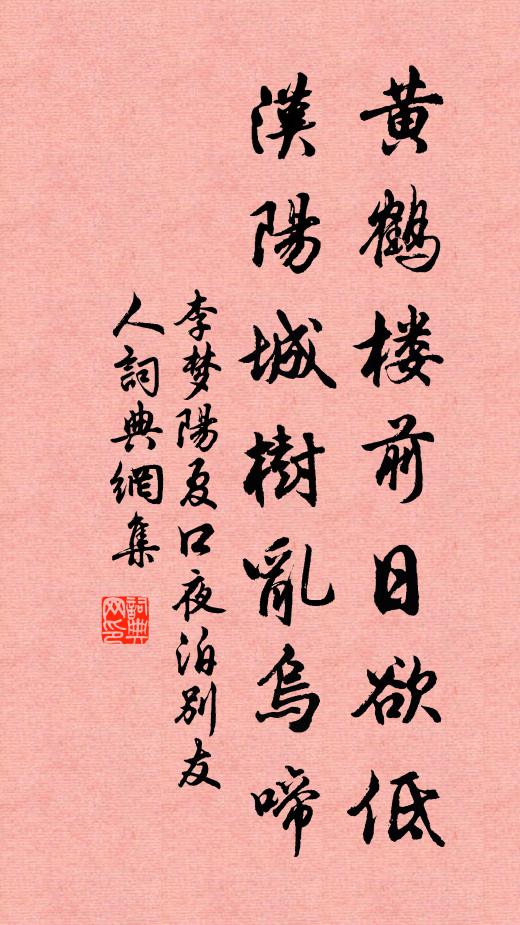 黄鹤楼前日欲低
漢陽城樹亂烏啼
李梦陽夏口夜泊别友
人詞典網集
詞典网印